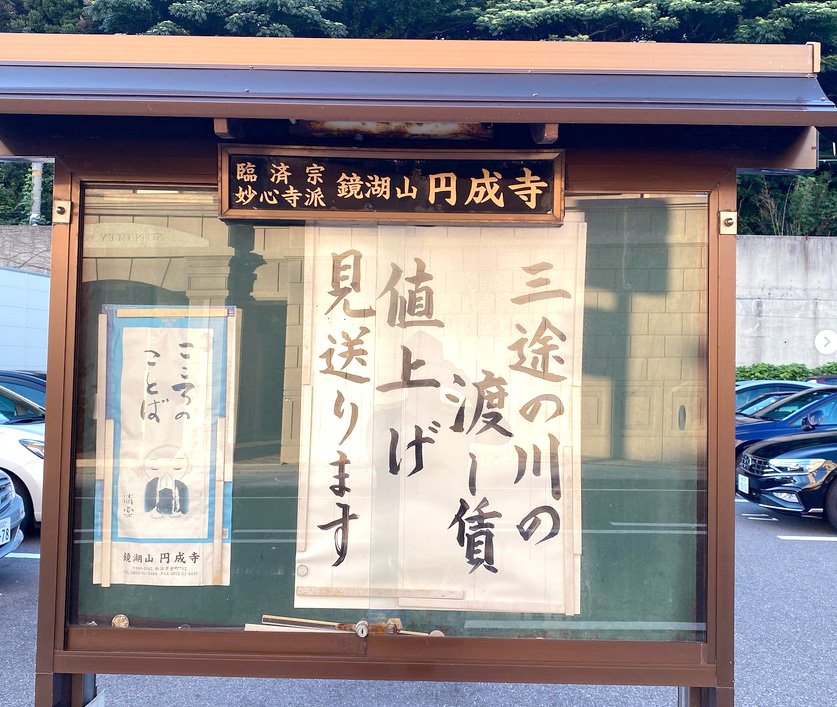 臨済宗
妙心寺派
鏡湖山 円成寺
三途の川の
渡し賃
値上げ
見送ります
こころの
ことば
鏡湖山 円成寺